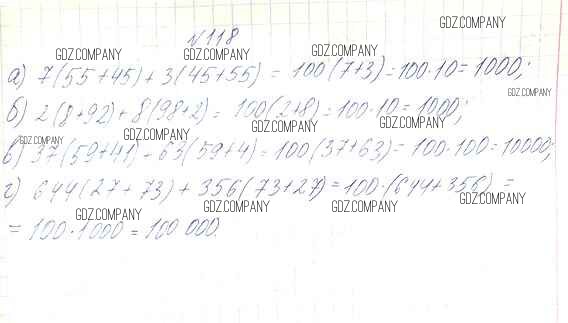 №118
а) 7(55+45)+3(45+55) = 100(7+3)=100·10=1000;
б) 2(8+92)+8(98+2)= 100(2+8)=100·10=1000;
в) 37(59+41)+63(59+4)=100(37+63)=100·100=10000;
г) 644(27+73)+356(73+27)=100·(644+356)=
=100·1000=100 000.
GDZ.COMPANY
GDZ.COMPANY
GDZ.COMPANY
GDZ.COMPANY
GDZ.COMPANY
GDZ.COMPANY
GDZ.COMPANY
GDZ.COMPANY
GDZ.COMPANY
GDZ.COMPANY
GDZ.COMPANY
GDZ.COMPANY
GDZ.COMPANY